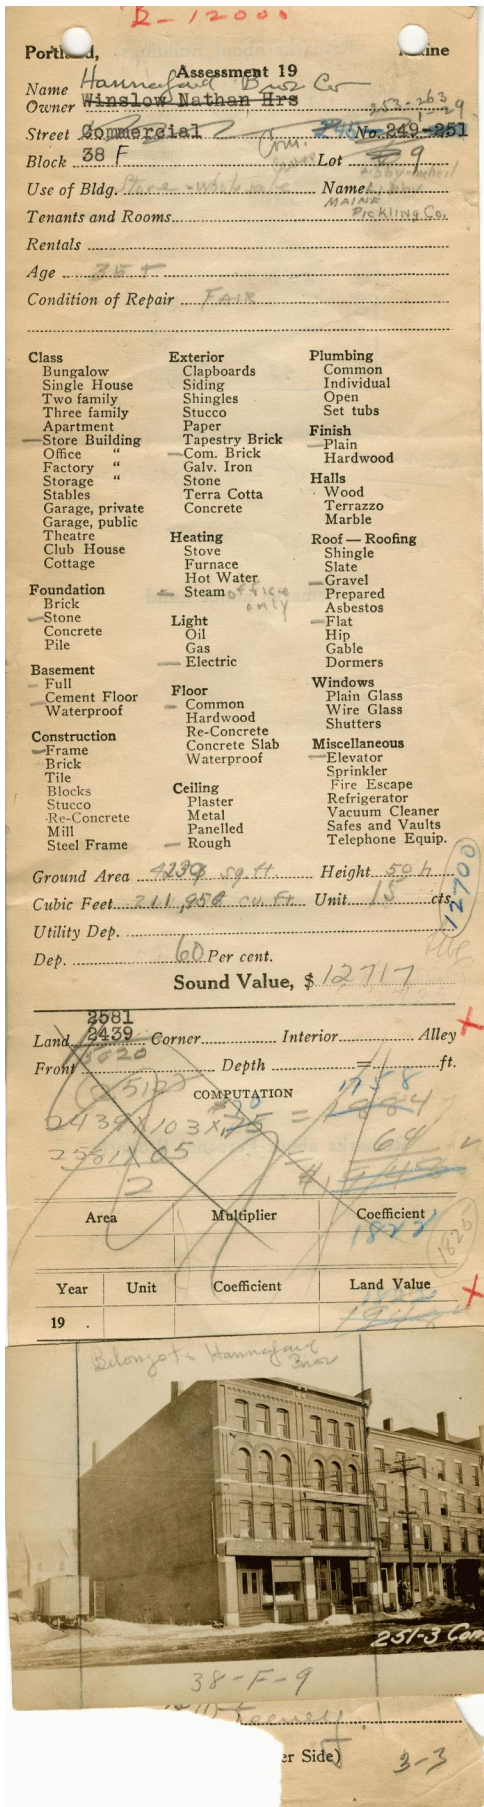 R-12000
Portland, Maine
Assessment 19
Name Hannaford Bros Co
Owner Winslow Nathan Hrs
253-263
Street Commercial No. 249-251
Block 38 F Lot 9
Use of Bldg. Store - wholesale Name
MAINE
Tenants and Rooms PICKLING Co.
Rentals
Age 35+
Condition of Repair FAIR
Class
Bungalow
Single House
Two family
Three family
Apartment
Store Building
Office "
Factory "
Storage "
Stables
Garage, private
Garage, public
Theatre
Club House
Cottage
Foundation
Brick
Stone
Concrete
Pile
Basement
Full
Cement Floor
Waterproof
Construction
Frame
Brick
Tile
Blocks
Stucco
Re-Concrete
Mill
Steel Frame
Exterior
Clapboards
Siding
Shingles
Stucco
Paper
Tapestry Brick
Com. Brick
Galv. Iron
Stone
Terra Cotta
Concrete
Heating
Stove
Furnace
Hot Water
Steam office only
Light
Oil
Gas
Electric
Floor
Common
Hardwood
Re-Concrete
Concrete Slab
Waterproof
Ceiling
Plaster
Metal
Panelled
Rough
Plumbing
Common
Individual
Open
Set tubs
Finish
Plain
Hardwood
Halls
Wood
Terrazzo
Marble
Roof — Roofing
Shingle
Slate
Gravel
Prepared
Asbestos
Flat
Hip
Gable
Dormers
Windows
Plain Glass
Wire Glass
Shutters
Miscellaneous
Elevator
Sprinkler
Fire Escape
Refrigerator
Vacuum Cleaner
Safes and Vaults
Telephone Equip.
Ground Area 4239 sq ft. Height 50 ft
Cubic Feet 211,950 cu. ft. Unit 15 cts.
12700
Utility Dep.
Dep. 60 Per cent.
Sound Value, $ 12717
2581
Land 2439 Corner Interior Alley
5020
Front Depth = ft.
COMPUTATION
1758
2439 X 103 X =
2581 X 05 64
2
Area Multiplier Coefficient
1822
1825
Year Unit Coefficient Land Value
19 .
Belongs to Hannaford Bros
251-3 Com
38-F-9
er Side) 3-3